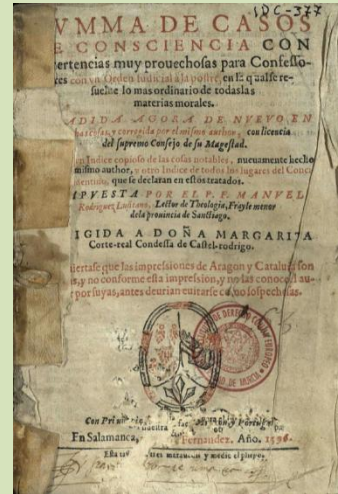 IDC-377
VMMA DE CASOS
E CONSCIENCIA CON
ertencias muy prouechosas para Confesso-
res con vn Orden Iudicial a la postre, en el qual se re-
suelue lo mas ordinario de todas las
materias morales.
ADIDA AGORA DE NVEVO EN
cosas, y corregida por el mismo author, con licencia
del supremo Consejo de su Magestad.
Indice copioso de las cosas notables, nueuamente hecho
mismo author, y otro Indice de todos los lugares del Conci
que se declaran en estos tratados.
PVESTA POR EL P. F. MANVEL
Rodriguez Lusitano, Lector de Theologia, Frayle menor
de la prouincia de Sanctiago.
IGIDA A DOÑA MARGARITA
Corte-real Condessa de Castel-rodrigo.
que las impressiones de Aragon y Cataluña son
y no conforme esta impression, y no las conoce el au-
por suyas, antes deurian euitarse como sospechosas.
Con
En Salamanca, Fernandez. Año. 1596.
Esta